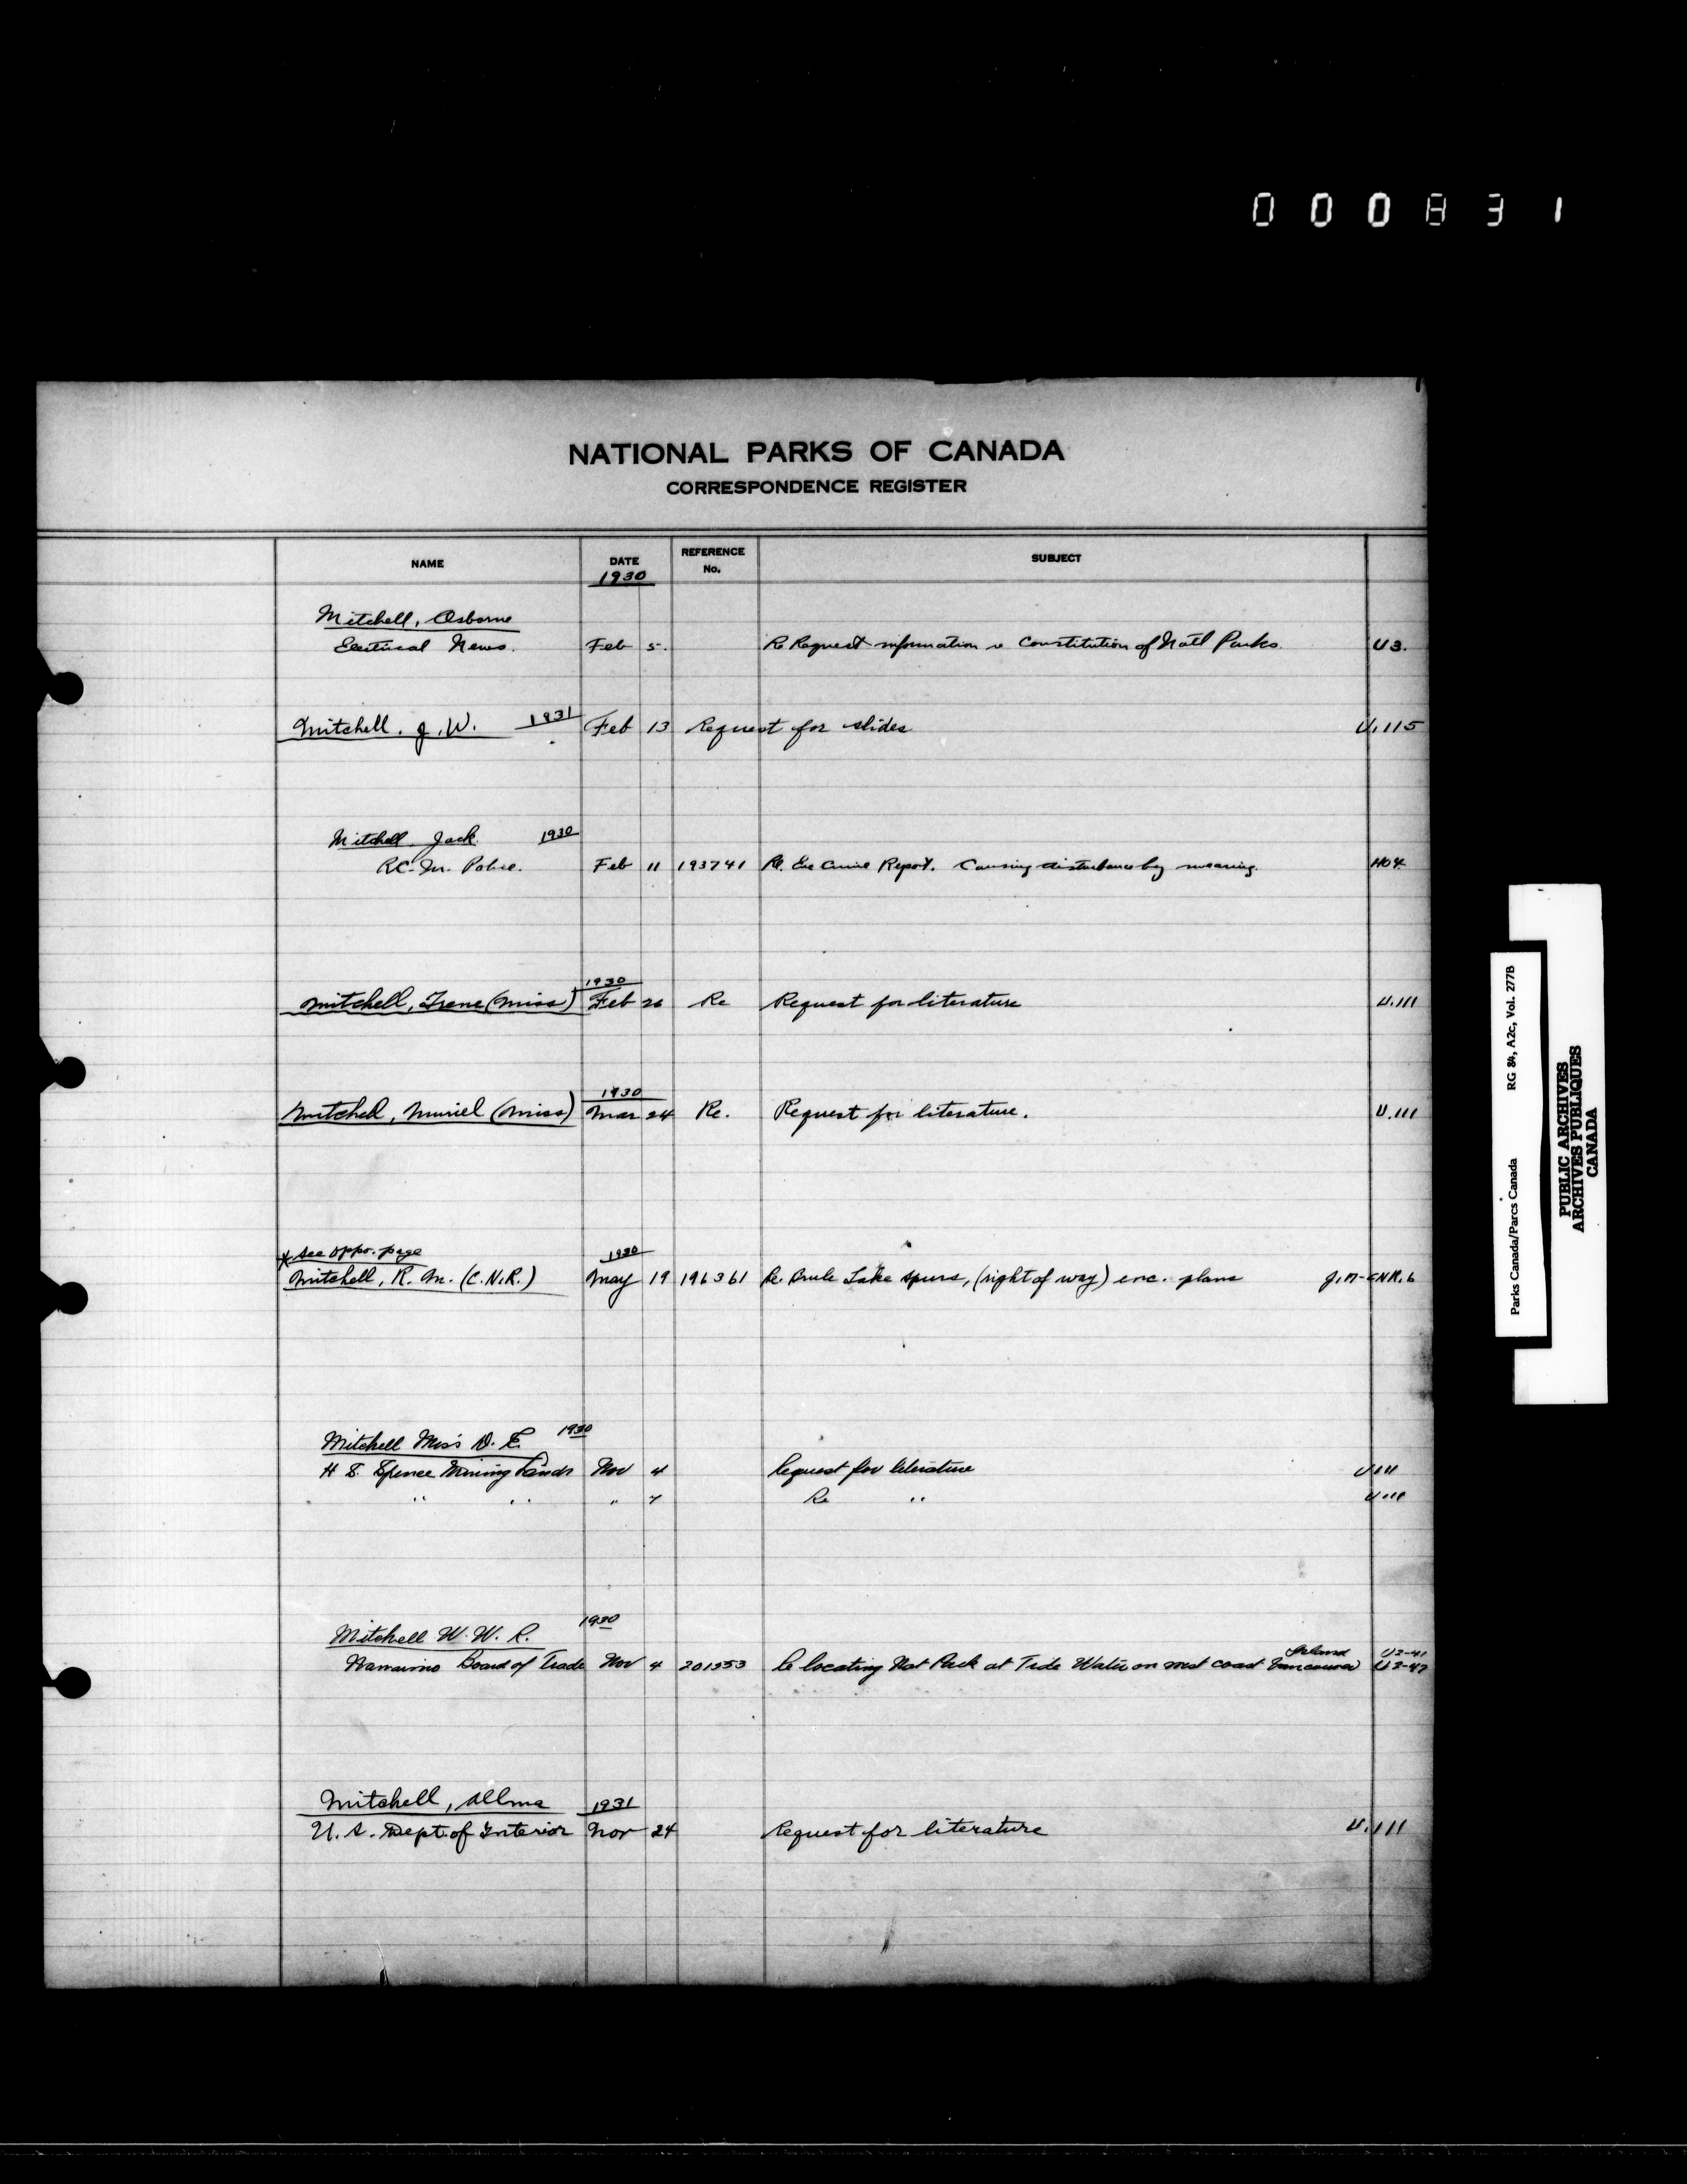 000831
NATIONAL PARKS OF CANADA
CORRESPONDENCE REGISTER
NAME DATE REFERENCE No. SUBJECT
1930
Mitchell, Osborne
Electrical News. Feb 5. Re Request information re Constitution of Natl Parks. U3.
Mitchell. J. W. 1931 Feb 13 Request for slides U.115
Mitchell Jack 1930
R.C. M. Police. Feb 11 193741 Re. Crime Report. Causing disturbance by swearing. H04
1930
Mitchell, Irene (Miss) Feb 26 Re Request for literature U.111
1930
Mitchell, Muriel (Miss) Mar 24 Re. Request for literature. U.111
* See oppo. page 1930
Mitchell, R. M. (C.N.R.) May 19 196361 Re. Brule Lake spurs, (right of way) enc. plans J.17-CNR.6
Mitchell Miss D. E. 1930
H S. Spence Mining Lands Nov 4 Request for literature U111
" " " 7 Re " U111
Mitchell W. W. R. 1930
Nanaimo Board of Trade Nov 4 201553 Re locating Nat Park at Tide Water on west coast Vancouver Island U2-41
U2-47
Mitchell, Allma 1931
U. S. Dept. of Interior Nov 24 Request for literature U.111
Parks Canada/Parcs Canada RG 84, A2c, Vol. 277B
PUBLIC ARCHIVES
ARCHIVES PUBLIQUES
CANADA